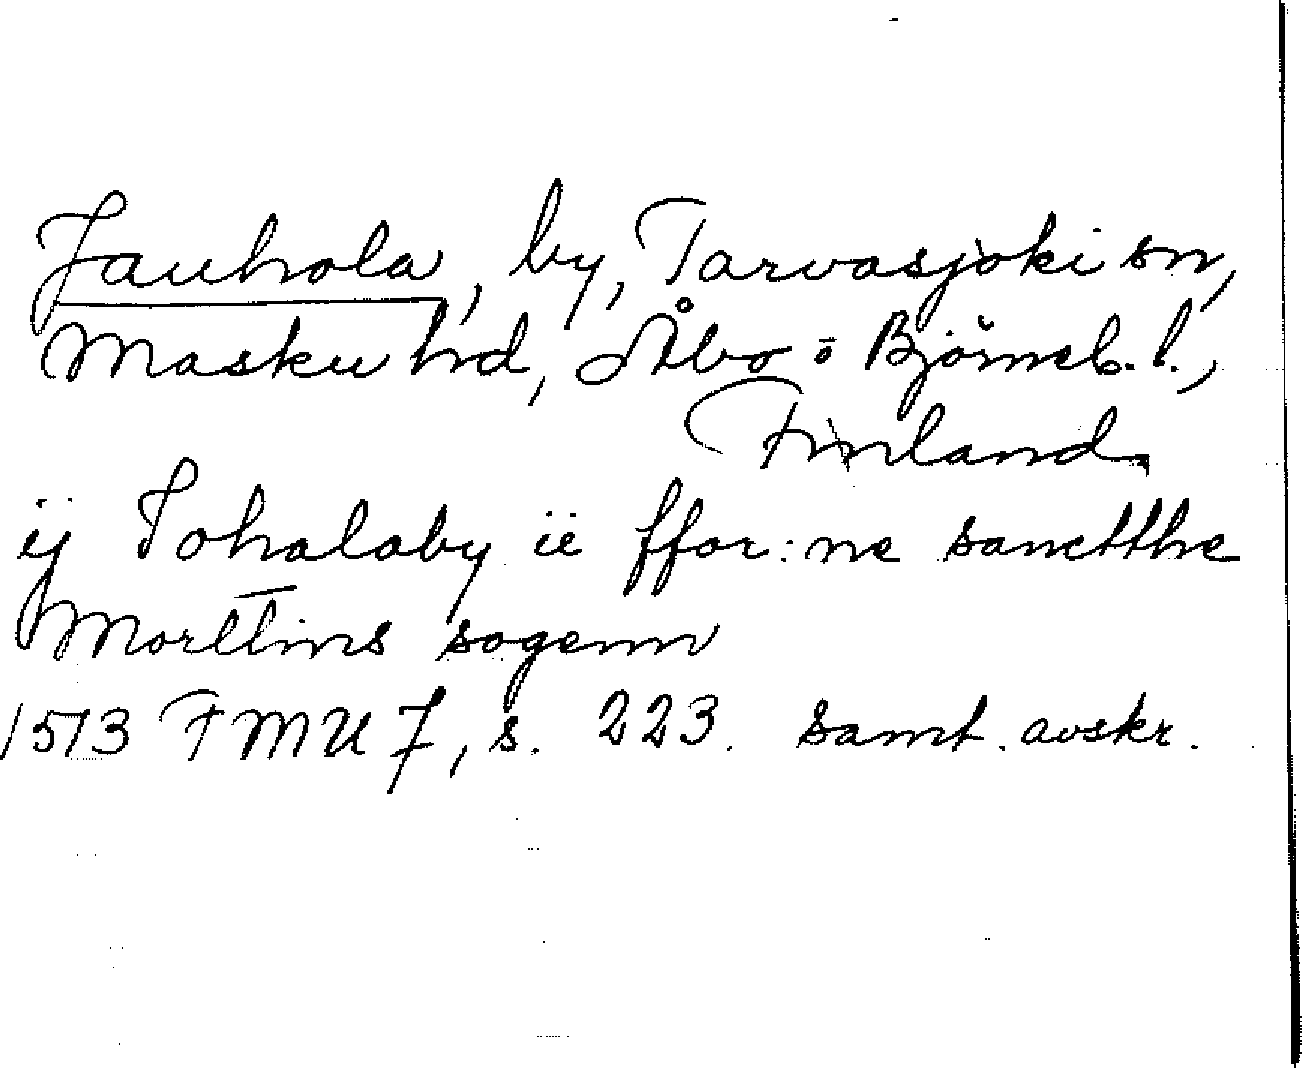 Jauhola, by, Tarvasjoki sn,
Masku hd, Åbo o Björneb. l.,
Finland
ij Johalaby ië ffor:ne sanctthe
Morttins sogenn
1513 FMU 7, s. 223. samt. avskr.